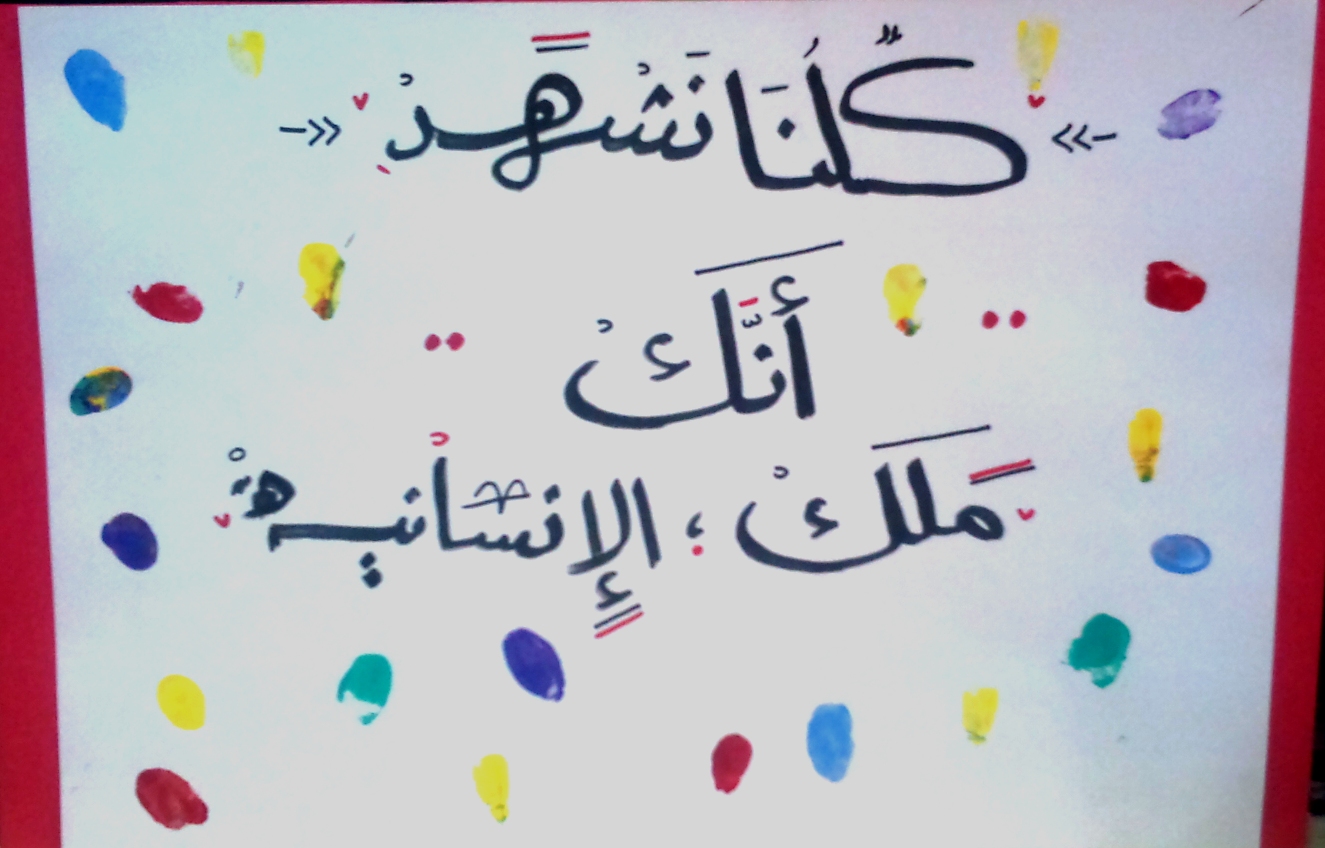 كُلُّنَا نَشْهَدْ
أَنَّكْ
مَلَكْ؛ الإِنْسَانيةْ